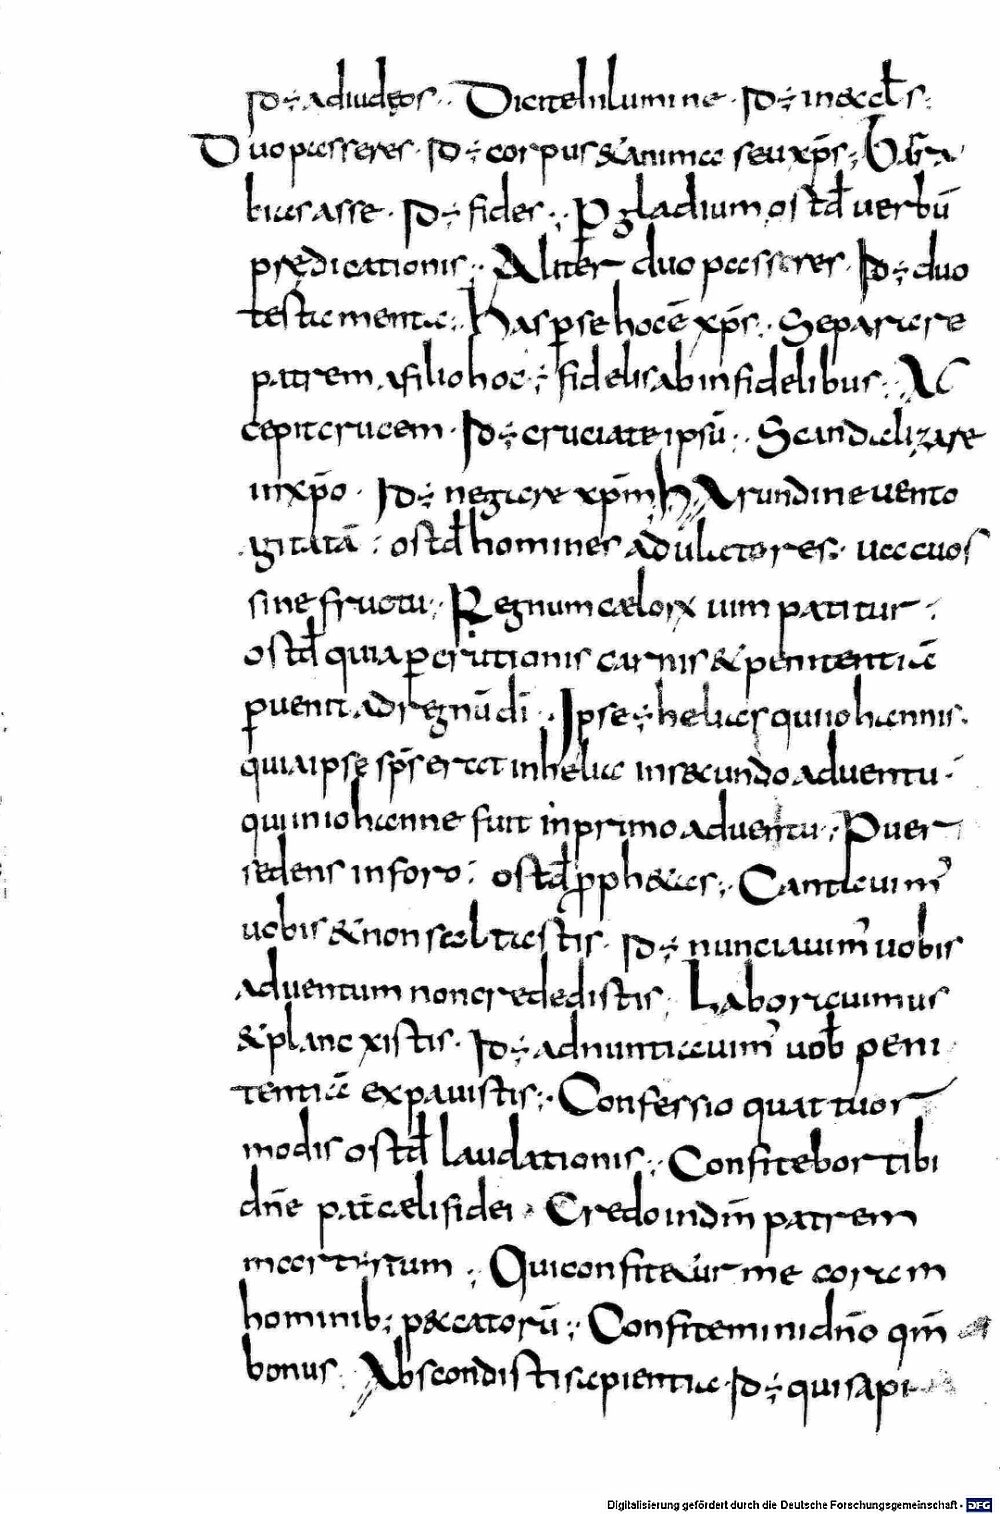 id ÷ adiudęos · Dicite in lumine · id ÷ in æccl̄s ·
Duo passeres · id ÷ corpus & anima seu xp̄s ·
bius asse · Id ÷ fides · P gladium ostd̄ uerbū
prędicationis · Aliter duo passeres · Id ÷ duo
testamenta · Has p̱ se hoc ē xp̄s · Separare
patrem a filio hoc ÷ fidelis ab infidelibus · Ac
cepit crucem · Id ÷ cruciate ipsū · Scandalizare
in xp̄o · Id ÷ negare xp̄m Arundine uento
agitatā : ostd̄ homines adulatores · uacuos
sine fructu · Regnum cælorx uim patitur ·
ostd̄ quia p̱ carnis & penitentiā
p̱uenit ad regnū dī · Ipse ÷ helias qui iohannis ·
quia ipse sp̄s erat in helia in secundo aduentu ·
qui in iohanne fuit in primo aduentu · Puer
sedens in foro : ostd̄ pphetas · Cantauim̄
uobis & non saltastis · id ÷ nunciauim̄ uobis
aduentum non crededistis · Laboricuimus
& planc xistis · Id ÷ adnuntiauim̄ uob̄ peni
tentiā expauistis · Confessio quattuor
modis ostd̄ laudationis · Confitebor tibi
dn̄e pat̄ cæli fidei · Credo in dm̄ patrem
martyrum · Qui confitetur me coram
hominib; peccatorū · Confitemini dn̄o qm̄
bonus · Abscondisti sapientia · Id ÷ qui sapi
Digitalisierung gefördert durch die Deutsche Forschungsgemeinschaft · DFG